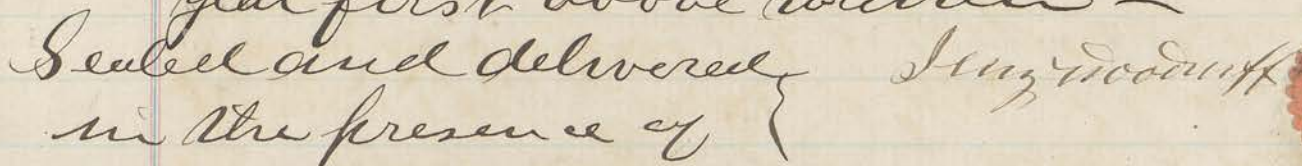 year first above written –
Sealed and delivered
in the presence of